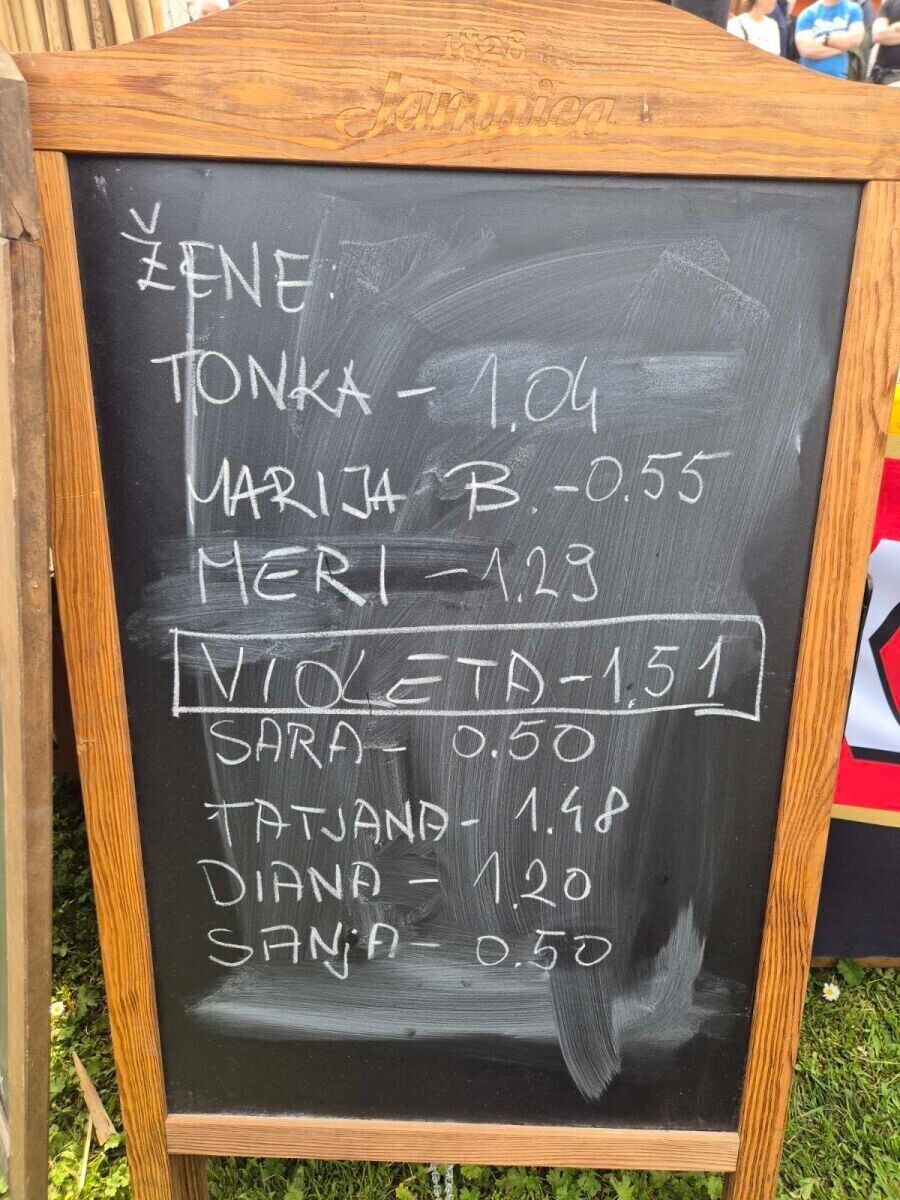 1828
Jamnica
ŽENE:
TONKA - 1.04
MARIJA B. - 0.55
MERI - 1.29
VIOLETA - 1.51
SARA - 0.50
TATJANA - 1.48
DIANA - 1.20
SANjA - 0.50